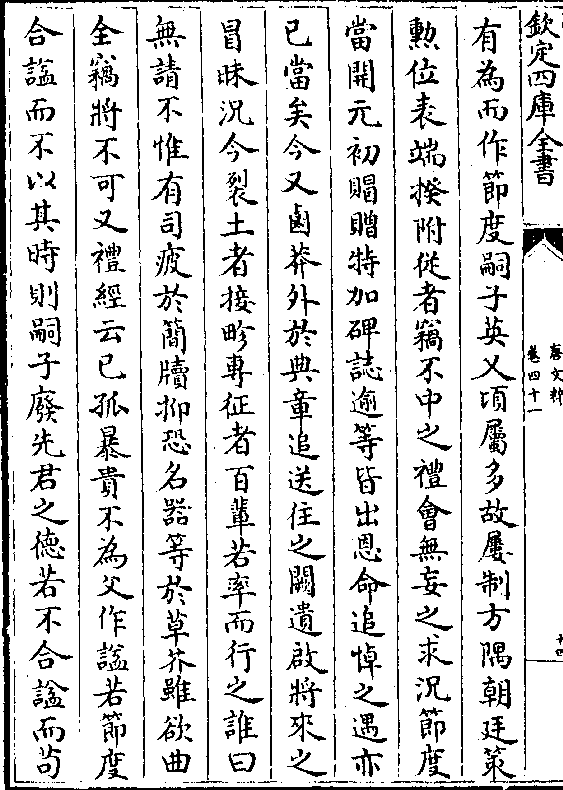 欽定四庫全書
唐文粹
卷四十一
十四
有為而作節度嗣子英乂頃屬多故屢制方隅朝廷策
勲位表端揆附從者竊不中之禮會無妄之求況節度
當開元初賜贈特加碑誌逾等皆出恩命追悼之遇亦
已當矣今又鹵莽外於典章追送往之闕遺啟將來之
冒昧況今裂土者接畛專征者百輩若率而行之誰曰
無請不惟有司疲於簡牘抑恐名器等於草芥雖欲曲
全竊將不可又禮經云已孤暴貴不為父作諡若節度
合諡而不以其時則嗣子廢先君之德若不合諡而茍